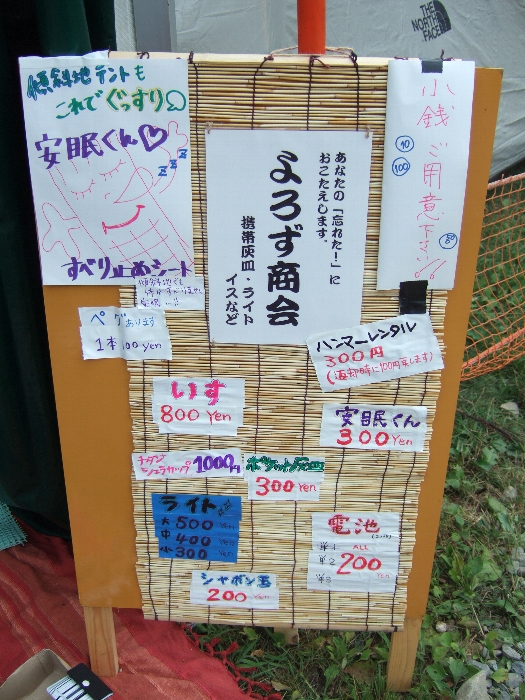 THE NORTH FACE
傾斜地テントも
これでぐっすり
安眠くん
zzz
すべり止めシート
小銭ご用意下さい
10
100
50
あなたの「忘れた！」に
おこたえします。
よろず商会
携帯灰皿・ライト
イスなど
ペグあります
1本100yen
ハンマーレンタル
300円
(返却時に100円戻します)
いす
800 yen
安眠くん
300 yen
チタン
シェラカップ 1000円
ポケット灰皿
300 yen
ライト
大 500 yen
中 400 yen
小 300 yen
電池
単1 ALL
単2 200
単3 yen
シャボン玉
200 yen